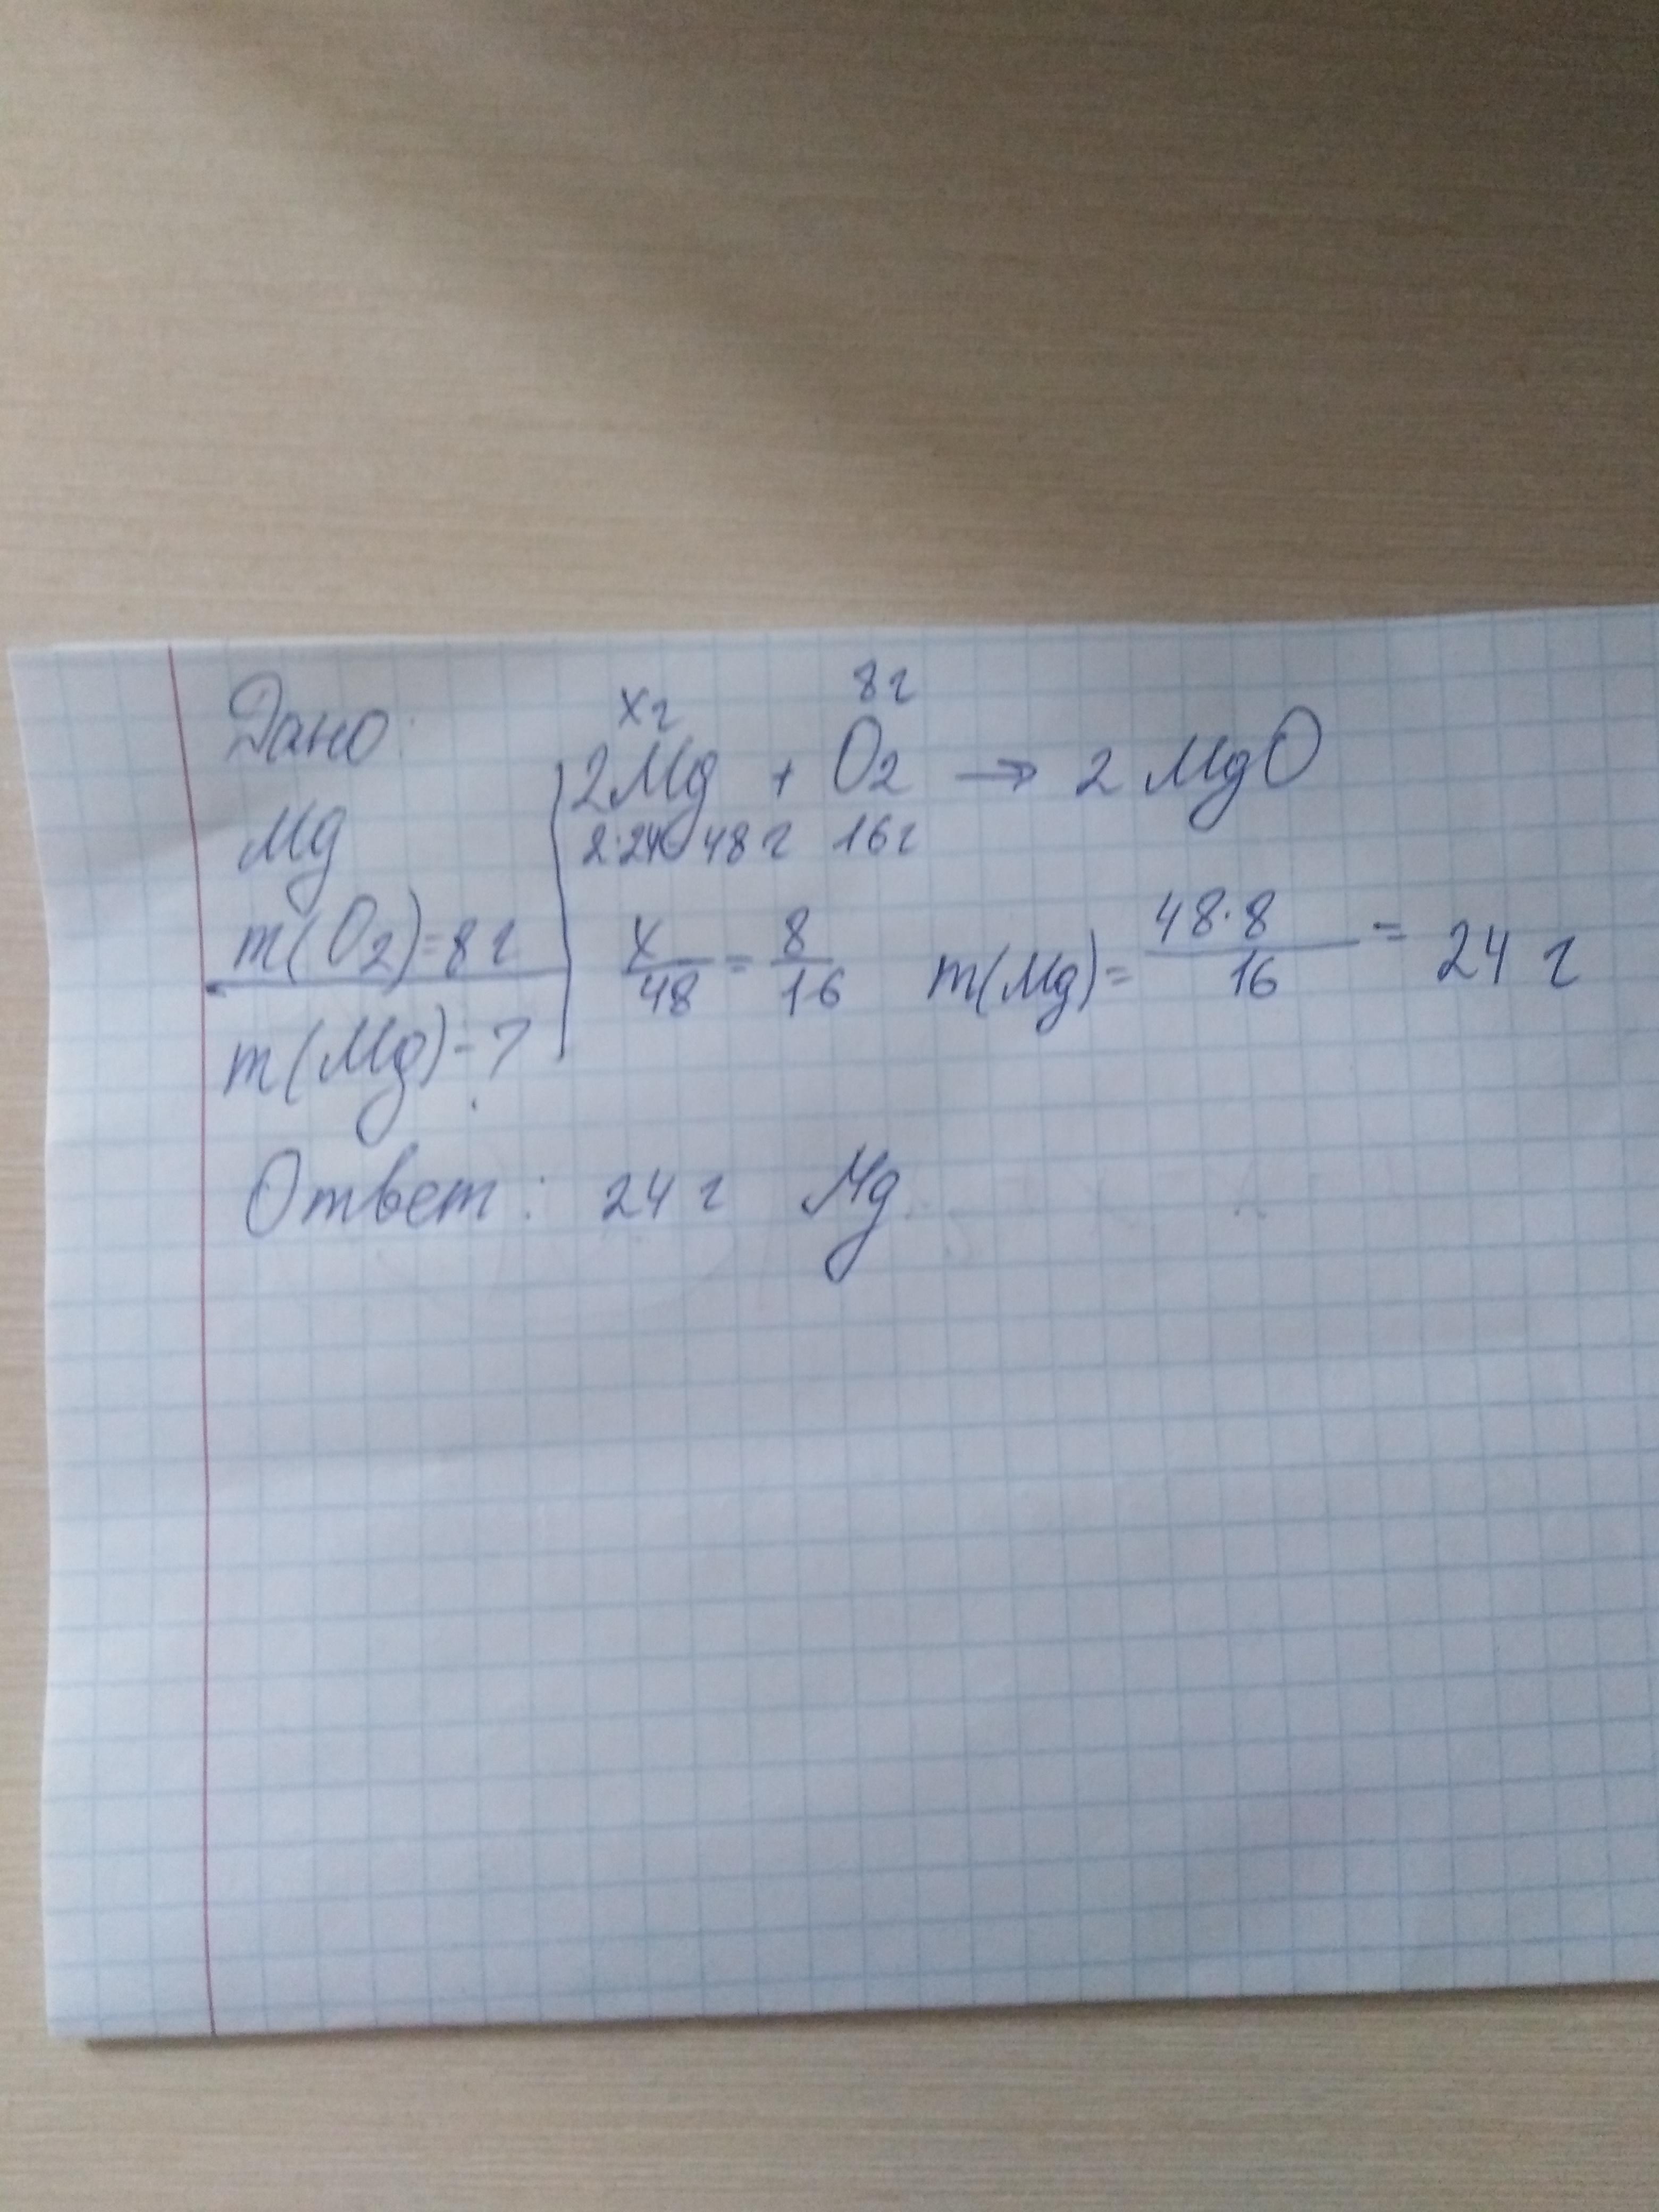 Дано:
Mg
m(O2)=8г
m(Mg)-?
xг 8г
2Mg + O2 → 2MgO
2·24 48г 16г
x/48 = 8/16 m(Mg)= 48·8/16 = 24 г
Ответ: 24 г Mg